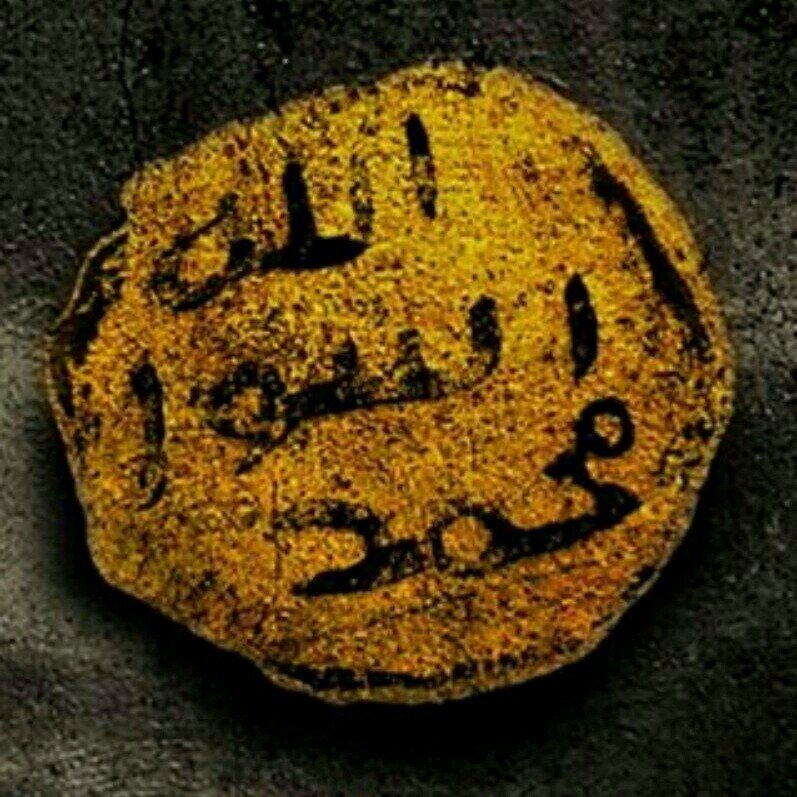 الله
السول
محمد